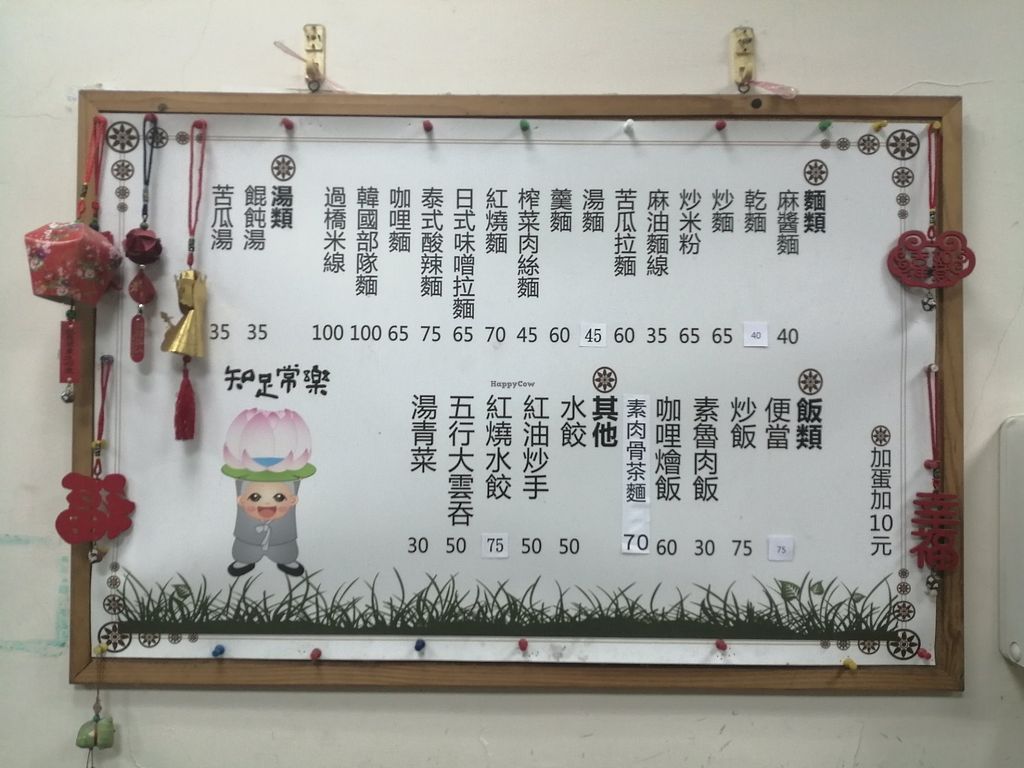 麵類
麻醬麵 40
乾麵 40
炒麵 65
炒米粉 65
麻油麵線 35
苦瓜拉麵 60
湯麵 45
羹麵 60
榨菜肉絲麵 45
紅燒麵 70
日式味噌拉麵 65
泰式酸辣麵 75
咖哩麵 65
韓國部隊麵 100
過橋米線 100
湯類
餛飩湯 35
苦瓜湯 35
加蛋加10元
飯類
便當 75
炒飯 75
素魯肉飯 30
咖哩燴飯 60
素肉骨茶麵 70
其他
水餃 50
紅油炒手 50
紅燒水餃 75
五行大雲吞 50
湯青菜 30
知足常樂
HappyCow
幸福